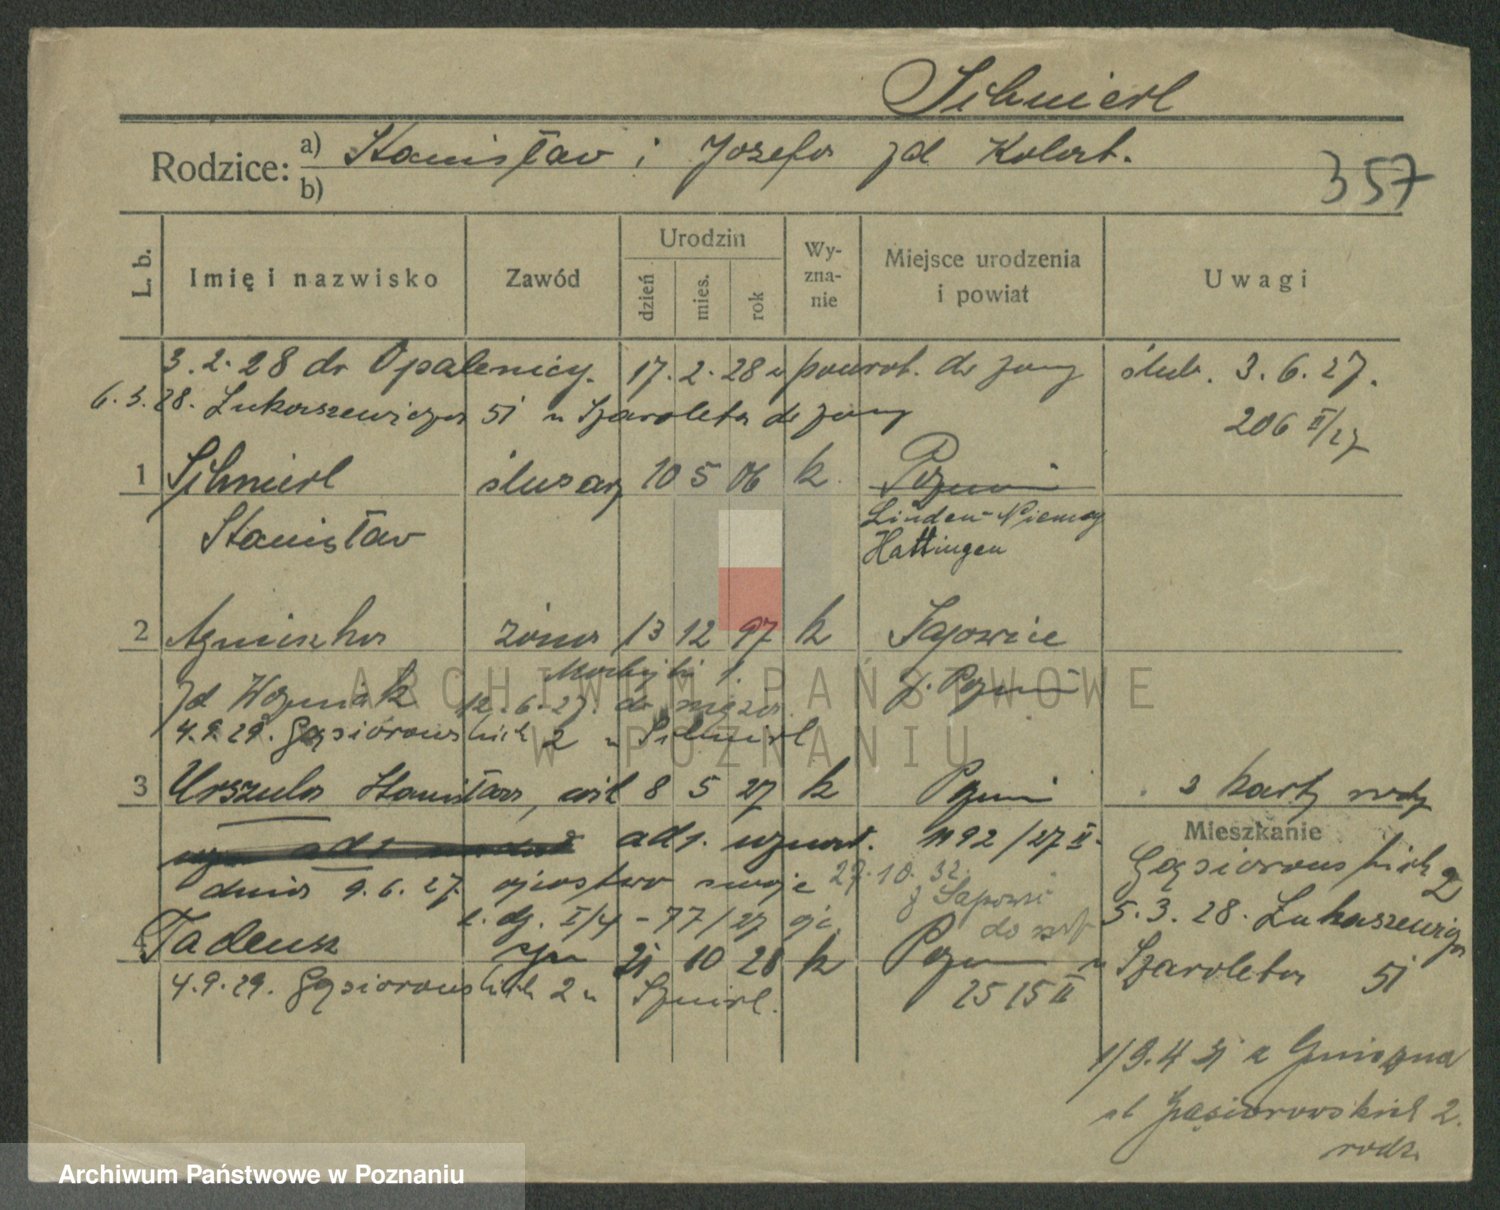 Schmierl
Rodzice: a) Stanisław i Józefa zd Kolat.
b)
357
L. b.
Imię i nazwisko
Zawód
Urodzin
dzień
mies.
rok
Wy-
zna-
nie
Miejsce urodzenia
i powiat
Uwagi
3. 2. 28 do Opalenicy. 17. 2. 28 powrot. do żony
ślub. 3. 6. 27.
6. 3. 28. Łukaszewicza 51 u Szaroleta do żony
206 II/27
1 Schmierl ślusarz 10 5 06 k Poznań
Stanisław
Linden-Niemcy
Hattingen
2 Agnieszka żona 13 12 97 k Sapowice
zd Wozniak 12. 6. 27. do męża p. Poznań
4. 9. 29. Gąsiorowskich 2 u Schmierl
3 Urszula Stanisława, 8 5 27 k Poznań
3 karty rodz
Mieszkanie
ads. uznał. 1192/27 II.
Gąsiorowskich 2
dnia 9. 6. 27. ojcostwo swoje 29. 10. 32.
z Sapowic
I/4 - 77/27
5. 3. 28. Łukaszewicza
4 Tadeusz syn 21 10 28 k Poznań
u Szaroleta 51
4. 9. 29. Gąsiorowskich 2 u Szmierl.
2515 II
1/9. 4 31 z Gniezna
ul Gąsiorowskich 2.
rodz.
ARCHIWUM PAŃSTWOWE
W POZNANIU
Archiwum Państwowe w Poznaniu